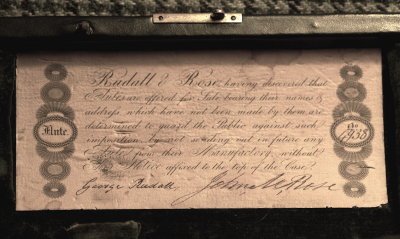 Rudall & Rose, having discovered that
Flutes are offered for Sale bearing their names &
address, which have not been made by them are
determined to guard the Public against such
imposition, by not sending out in future any
Flute from their Manufactory without
a Notice affixed to the top of the Case.
Flute.
No 1938
George Rudall, John M. Rose